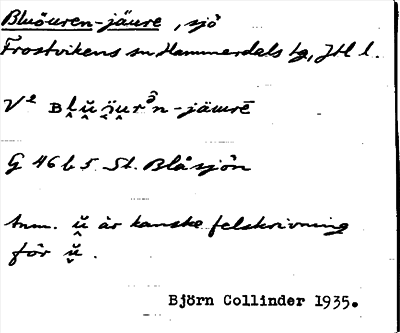 Bluöuren-jäure, sjö
Frostvikens sn, Hammerdals tg, Jtl l.
G 46 b 5. St. Blåsjön
Anm. ṷ̆ är kanske felskrivning
för ṷ̆.
Björn Collinder 1935.